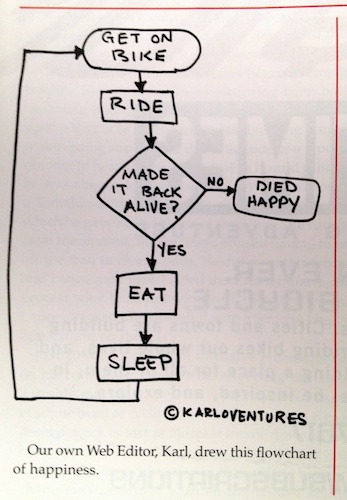 GET ON
BIKE
RIDE
MADE
IT BACK
ALIVE?
NO
DIED
HAPPY
YES
EAT
SLEEP
©KARLOVENTURES
Our own Web Editor, Karl, drew this flowchart
of happiness.